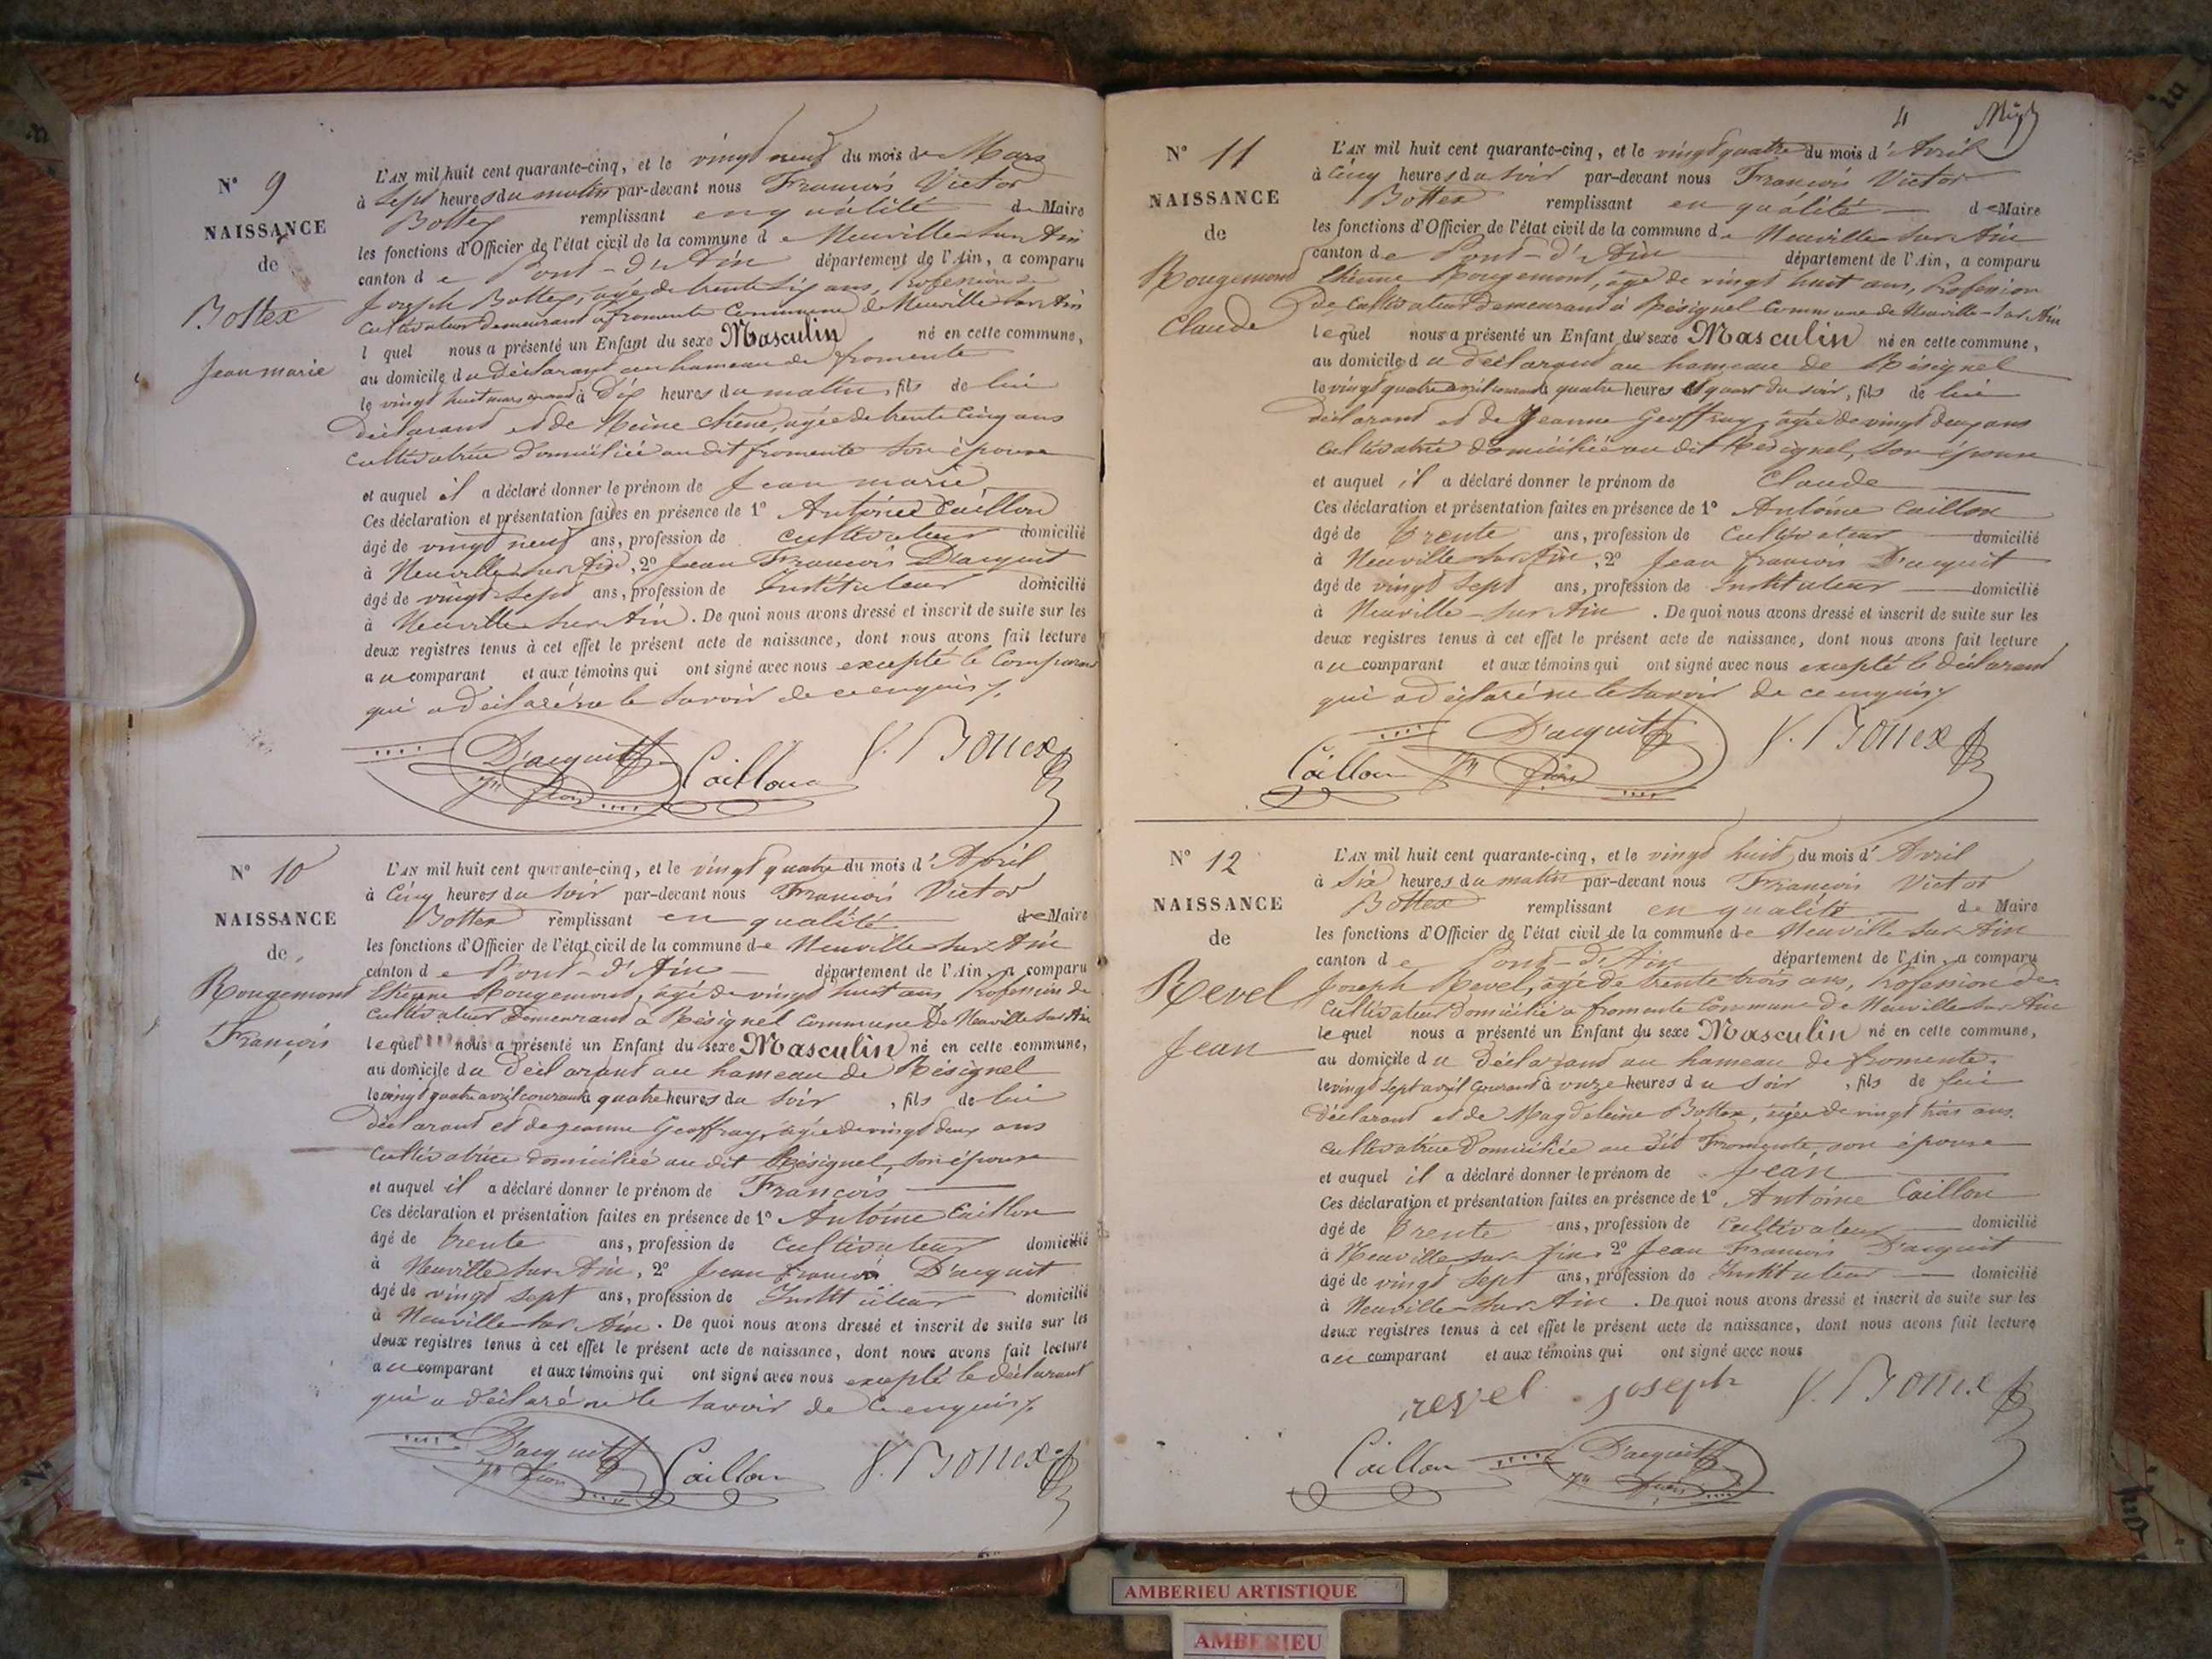 N° 9
NAISSANCE
de
Bottex
Jean marie
L'AN mil huit cent quarante-cinq, et le vingt neuf du mois de Mars
à Sept heures du matin par-devant nous François Victor
Bottex remplissant en qualité de Maire
les fonctions d'Officier de l'état civil de la commune de Neuville sur Ain
canton de Pont-d'Ain département de l'Ain, a comparu
Joseph Bottex, âgé de trente six ans, Profession de
Cultivateur demeurant à fromente Commune de Neuville sur Ain
l quel nous a présenté un Enfant du sexe Masculin né en cette commune,
au domicile du Déclarant au hameau de fromente
le vingt huit mars courant à Dix heures du matin, fils de lui
déclarant et de Reine Chêne, agée de trente cinq ans
Cultivatrice domiciliée au dit fromente son épouse
et auquel il a déclaré donner le prénom de Jean marie
Ces déclaration et présentation faites en présence de 1° Antoine Caillon
âgé de vingt neuf ans, profession de cultivateur domicilié
à Neuville sur Ain, 2° Jean François D'acquit
âgé de vingt Sept ans, profession de Instituteur domicilié
à Neuville sur Ain. De quoi nous avons dressé et inscrit de suite sur les
deux registres tenus à cet effet le présent acte de naissance, dont nous avons fait lecture
au comparant et aux témoins qui ont signé avec nous excepté le Comparant
qui a déclaré ne le savoir de ce enquis
D'acquit Caillon V. Bottex
Jn
N° 10
NAISSANCE
de
Rougemont
François
L'AN mil huit cent quarante-cinq, et le vingt quatre du mois d'Avril
à Cinq heures du soir par-devant nous François Victor
Bottex remplissant en qualité de Maire
les fonctions d'Officier de l'état civil de la commune de Neuville sur Ain
canton de Pont-d'Ain département de l'Ain, a comparu
Etienne Rougemont, âgé de vingt huit ans, Profession de
Cultivateur Demeurant à Résignel Commune De Neuville sur Ain
lequel nous a présenté un Enfant du sexe Masculin né en cette commune,
au domicile du Déclarant au hameau de Résignel
le vingt quatre avril courant à quatre heures du soir, fils de lui
déclarant et de jeanne Geoffray, agée de vingt deux ans
Cultivatrice domiciliée au dit Résignel, son épouse
et auquel il a déclaré donner le prénom de François
Ces déclaration et présentation faites en présence de 1° Antoine Caillon
âgé de trente ans, profession de Cultivateur domicilié
à Neuville sur Ain, 2° Jean françois D'acquit
âgé de vingt sept ans, profession de Instituteur domicilié
à Neuville sur Ain. De quoi nous avons dressé et inscrit de suite sur les
deux registres tenus à cet effet le présent acte de naissance, dont nous avons fait lecture
au comparant et aux témoins qui ont signé avec nous excepté le déclarant
qui a déclaré ne le savoir de ce enquis
D'acquit Caillon V. Bottex
Jn
4
N° 11
NAISSANCE
de
Rougemond
Claude
L'AN mil huit cent quarante-cinq, et le vingt quatre du mois d'Avril
à Cinq heures du soir par-devant nous François Victor
Bottex remplissant en qualité de Maire
les fonctions d'Officier de l'état civil de la commune de Neuville sur Ain
canton de Pont-d'Ain département de l'Ain, a comparu
Etienne Rougemont, âgé de vingt huit ans, Profession
de Cultivateur demeurant à Résignel Commune de Neuville-sur Ain
lequel nous a présenté un Enfant du sexe Masculin né en cette commune,
au domicile du déclarant au hameau de Résignel
le vingt quatre avril courant à quatre heures et quart du soir, fils de lui
déclarant et de Jeanne Geoffray, agée de vingt deux ans
Cultivatrice domiciliée au dit Résignel, son épouse
et auquel il a déclaré donner le prénom de Claude
Ces déclaration et présentation faites en présence de 1° Antoine Caillon
âgé de trente ans, profession de Cultivateur domicilié
à Neuville sur Ain, 2° Jean françois D'acquit
âgé de vingt sept ans, profession de Instituteur domicilié
à Neuville-sur Ain. De quoi nous avons dressé et inscrit de suite sur les
deux registres tenus à cet effet le présent acte de naissance, dont nous avons fait lecture
au comparant et aux témoins qui ont signé avec nous excepté le déclarant
qui a déclaré ne le savoir de ce enquis
D'acquit V. Bottex
Caillon Jn
N° 12
NAISSANCE
de
Revel
Jean
L'AN mil huit cent quarante-cinq, et le vingt huit du mois d'Avril
à Six heures du matin par-devant nous François Victor
Bottex remplissant en qualité de Maire
les fonctions d'Officier de l'état civil de la commune de Neuville sur Ain
canton de Pont-d'Ain département de l'Ain, a comparu
Joseph Revel, âgé de trente trois ans, Profession de
Cultivateur Domicilié à fromente Commune de Neuville sur Ain
lequel nous a présenté un Enfant du sexe Masculin né en cette commune,
au domicile du Déclarant au hameau de fromente.
le vingt sept avril Courant à onze heures du soir, fils de lui
Déclarant et de Magdeleine Bottex, agée de vingt trois ans.
cultivatrice Domiciliée au dit Fromente, son épouse
et auquel il a déclaré donner le prénom de Jean
Ces déclaration et présentation faites en présence de 1° Antoine Caillon
âgé de trente ans, profession de Cultivateur domicilié
à Neuville sur Ain, 2° Jean François D'acquit
âgé de vingt Sept ans, profession de Instituteur domicilié
à Neuville-sur Ain. De quoi nous avons dressé et inscrit de suite sur les
deux registres tenus à cet effet le présent acte de naissance, dont nous avons fait lecture
au comparant et aux témoins qui ont signé avec nous
revel joseph V. Bottex
Caillon D'acquit
Jn
AMBERIEU ARTISTIQUE
AMBERIEU